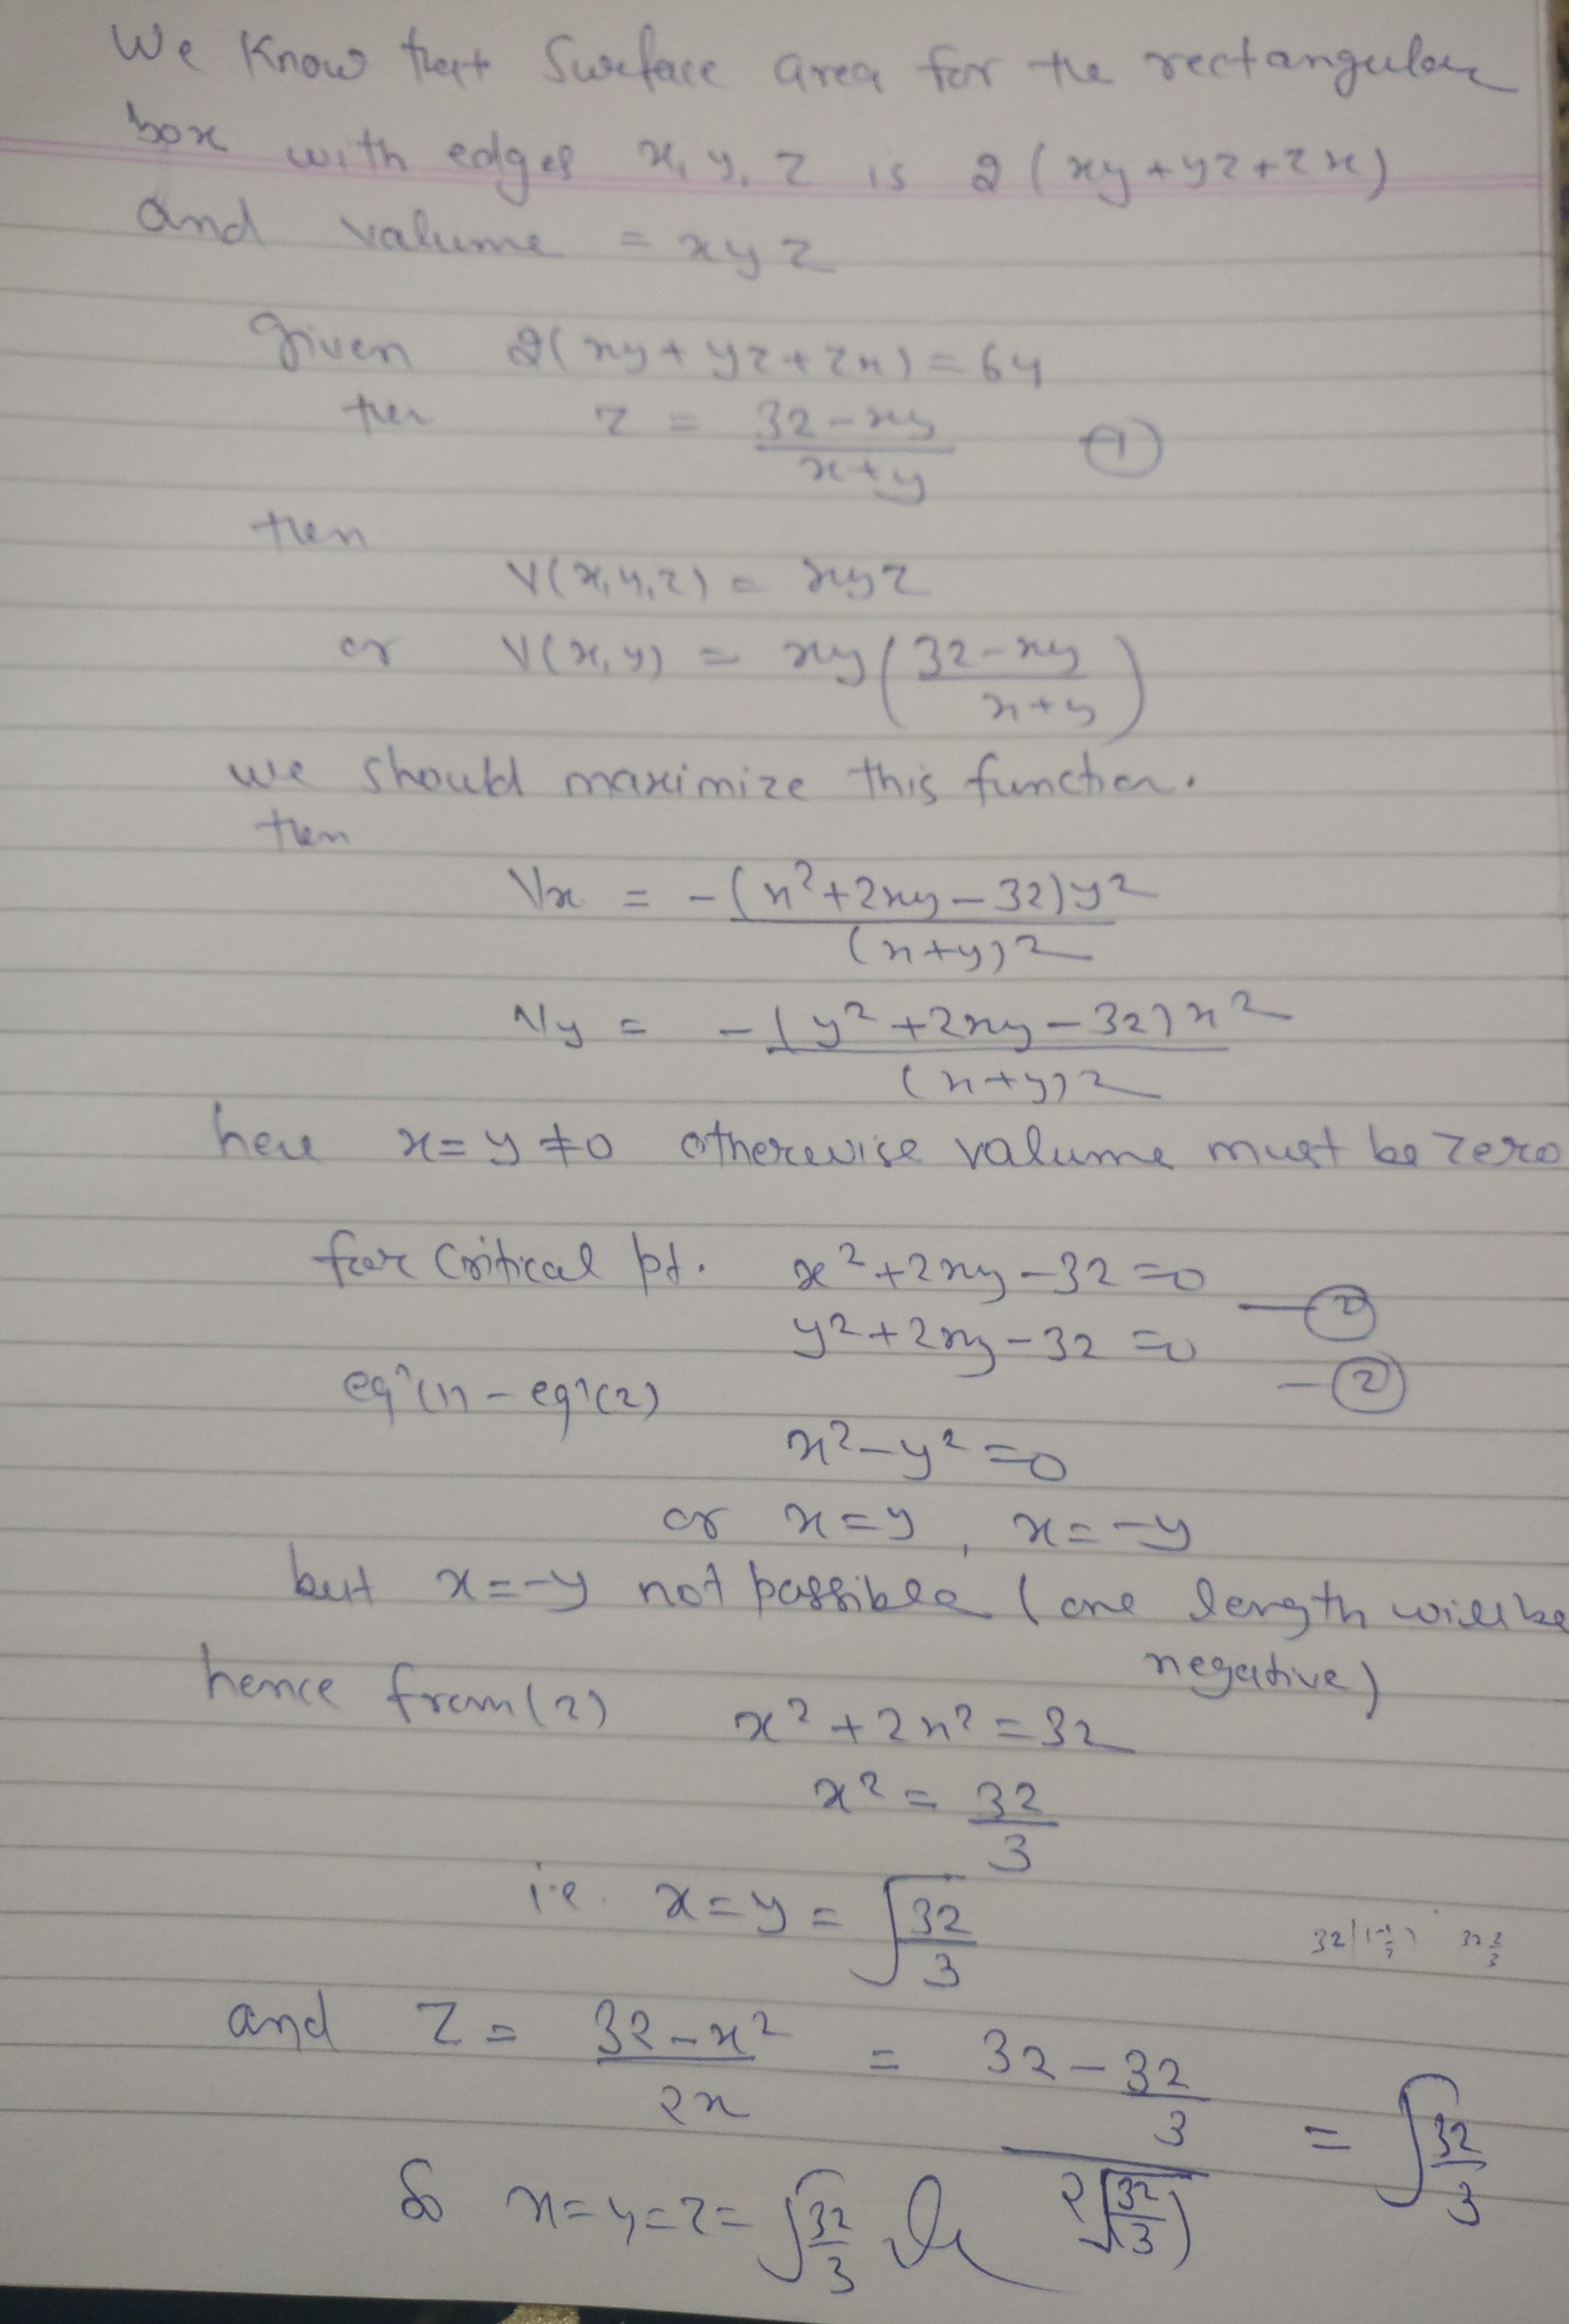 We Know that Surface area for the rectangular
box with edges x, y, z is 2(xy+yz+zx)
and valume = xyz
Given 2(xy+yz+zx)=64
then z = (32-xy)/(x+y) ①
then
V(x,y,z) = xyz
or V(x,y) = xy((32-xy)/(x+y))
we should maximize this function.
then
Vx = -(x²+2xy-32)y²/(x+y)²
Vy = -(y²+2xy-32)x²/(x+y)²
here x=y≠0 otherwise valume must be zero
for Critical pt. x²+2xy-32=0 —②
y²+2xy-32=0 —②
eqⁿ(1)-eqⁿ(2)
x²-y²=0
or x=y, x=-y
but x=-y not possible (one length will be
negative)
hence from(2) x²+2x²=32
x² = 32/3
i.e. x=y=√(32/3)
and z = (32-x²)/2x = (32-32/3)/(2√(32/3)) = √(32/3)
So x=y=z=√(32/3)